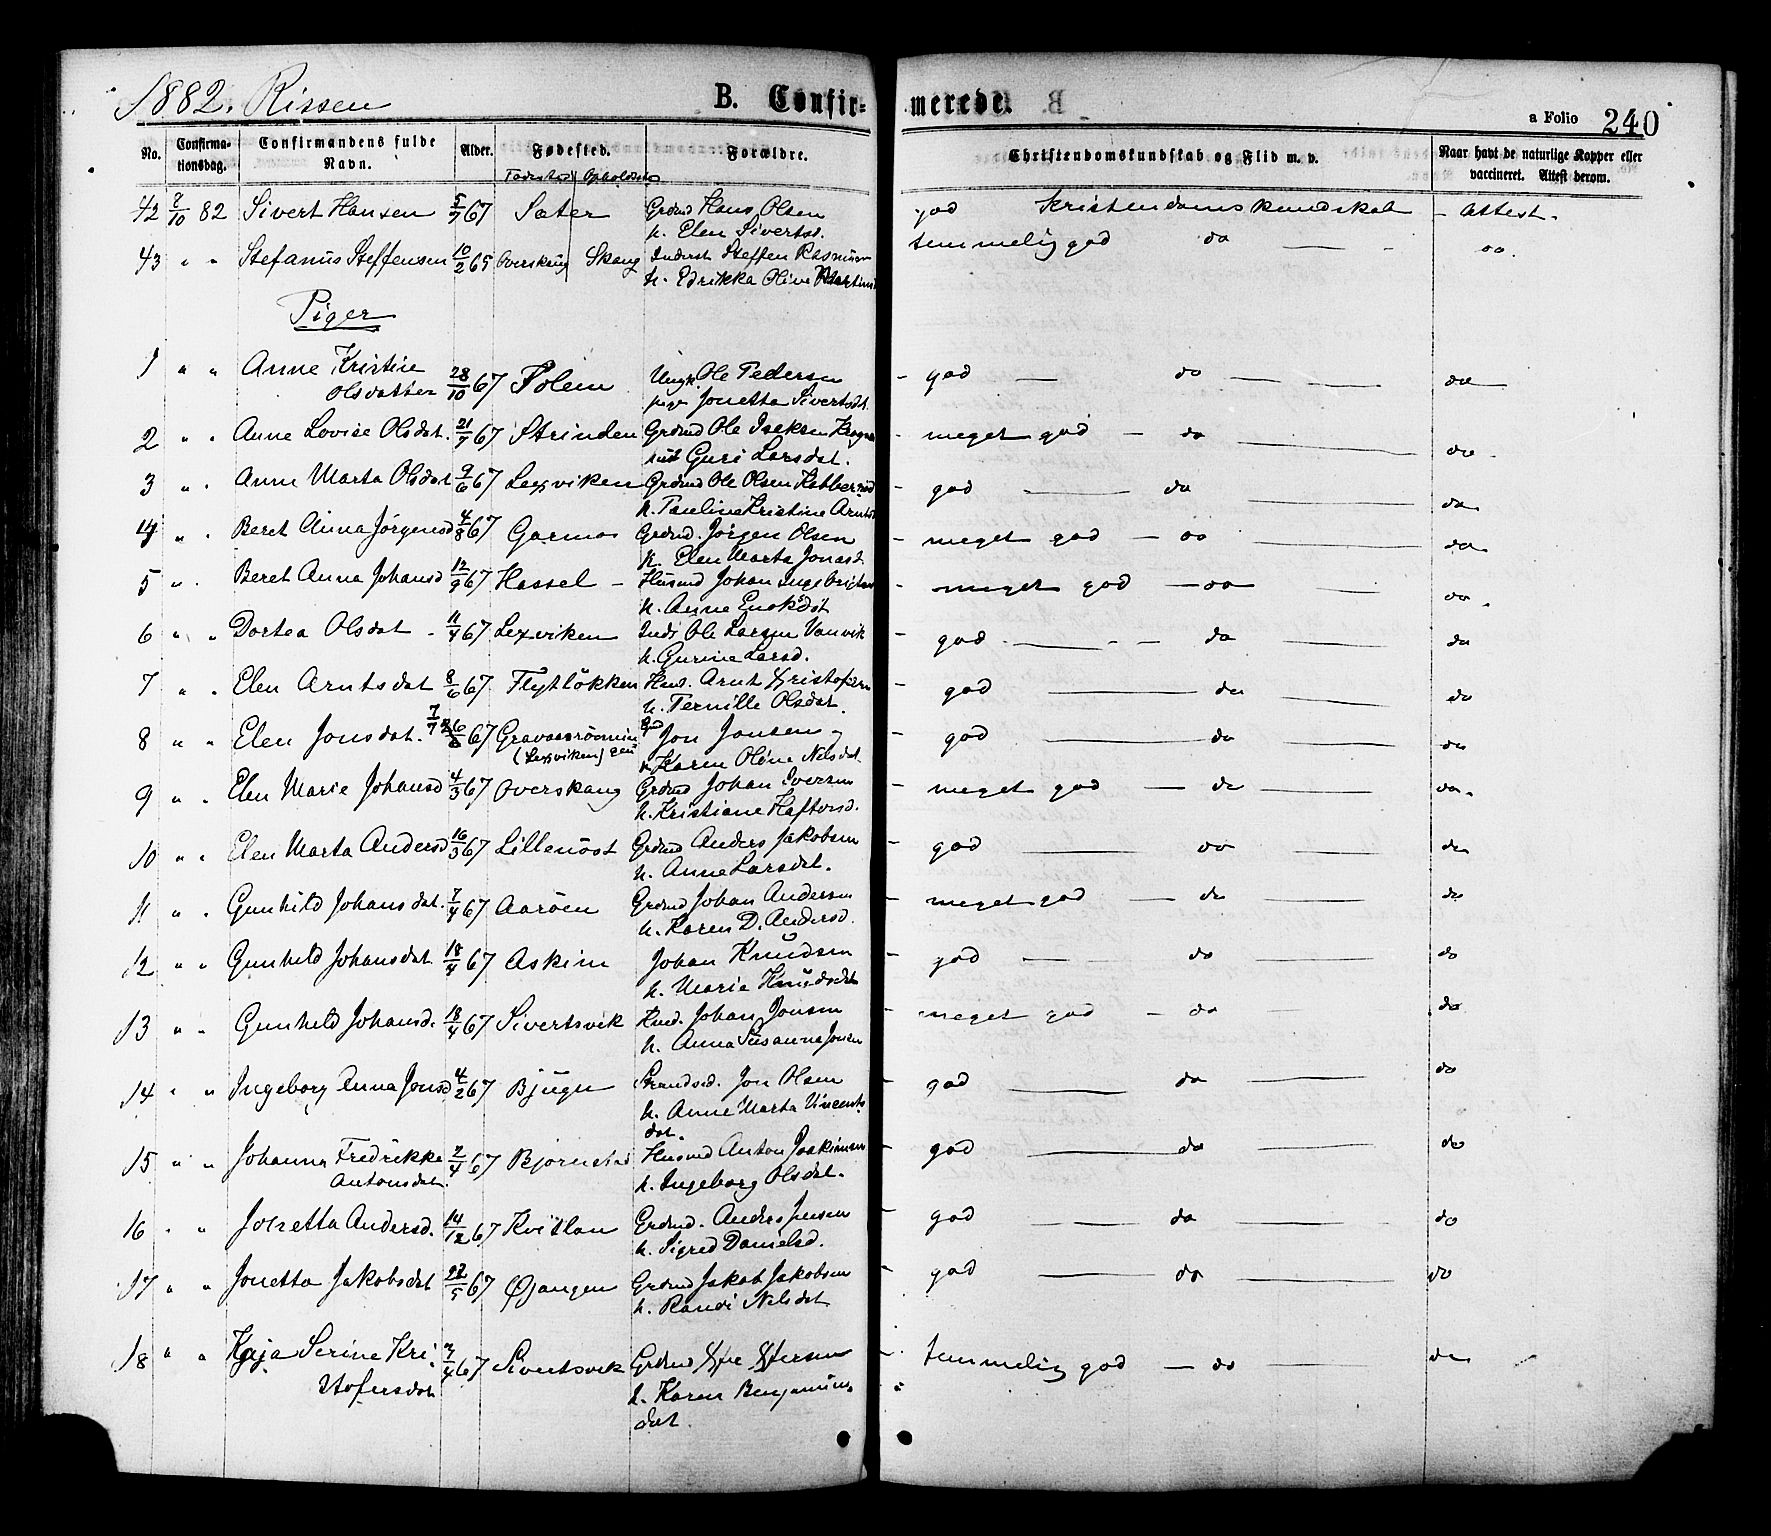 1882. Rissen B. Confir- merede. a Folio 240
No. Confirma-tionsdag. Confirmandens fulde Navn. Alder. Fødested. Forældre. Christendomskundskab og Flid m. v. Naar havt de naturlige Kopper eller vaccineret. Attest derom.
Fødested Opholdssted
42 8/10 82 Sivert Hansen 5/7 67 Sæter Grdmd Hans Olsen god Kristendomskundskab - Attest.
h. Elen Sivertsd.
43 " " Stefanus Steffensen 10/2 65 Overskaug Skaug Inderst Steffen Rasmusen temmelig god do do.
h. Edrikka Olive
Piger
1 " " Anne Kristine 28/10 67 Folein Ungk. Ole Pedersen - god do do
Olsdatter pige Jonetta Sivertsdt.
2 " " Anne Lovise Olsdat. 21/7 67 Strinden Grdmd Ole Isaksen - meget god - do do.
Guri Larsdat.
3 " " Anne Marta Olsdat 9/6 67 Lexviken Grdmd Ole Olsen - god do do.
h. Pauline Kristine
4 " " Beret Anna Jørgensd 4/8 67 Garmo Grdmd. Jørgen Olsen - meget god - do do
h. Elen Marta Jonasd
5 " " Beret Anna Johansd 12/9 67 Hassel - Husmd Johan Ingebrigtsen meget god - do do.
h. Anne Enoksdt
6 " " Dortea Olsdat - 11/4 67 Lexviken Indr Ole Larsen Vanvik - god - do do
h. Gurine Larsd.
7 " " Elen Arntsdat 8/6 67 Flytløkken Hmd. Arnt Kristofersen - god do do
h. Pernille Olsdat.
8 " " Elen Jonsdat. 7/7 67 Jon Jonsen - god do do
(Lexviken) h. Karen Oline Nilsdat.
9 " " Elen Marie Johansd 4/3 67 Overskaug Grdmd Johan Iversen - meget god - do do.
h. Kristiane Haftorsd.
10 " " Elen Marta Andersd 16/3 67 Lillenøst Grdmd Anders Jakobsen - god do do
h. Anne Larsdat.
11 " " Gunhild Johansdat. 7/4 67 Aarøen Grdmd Johan Andersen - meget god - do do
h. Karen D. Andersd.
12 " " Gunhild Johansdat. 18/4 67 Askim Johan Knudsen - god - do do
h. Maria Knudsdat
13 " " Gunhild Johansd. 18/4 67 Sivertsvik Hmd. Johan Jonsen - meget god - do do
h. Anna Susanna Jonsen
14 " " Ingeborg Anna Jonsd 4/2 67 Bjugn Strandsd. Jon Olsen - god do do
h. Anne Marta Vincents
dat.
15 " " Johanna Fredrikke 2/4 67 Bjørnstad Husmd Anton Joakimsen - god do do
Antonsdat. h. Ingeborg Olsdat.
16 " " Jonetta Andersd. 14/12 67 Kvitlan Grdmd. Anders Jensen - god do do
h. Sigred Danielsd.
17 " " Jonetta Jakobsdat 22/5 67 Øjangen Grdmd Jakob Jakobsen god do do
h. Randi Nilsdat
18 " " Kaja Serine Kri- 7/4 67 Sivertsvik Grdmd - temmelig god - do do
stofersdat h. Karen Benjamins-
dat.